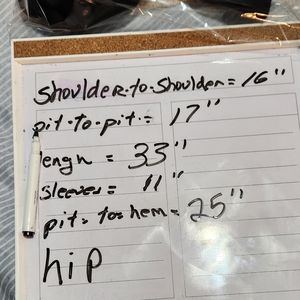 shoulder-to-shoulder = 16"
pit-to-pit = 17"
lengh = 33"
Sleeves = 11"
pit-to-hem = 25"
hip